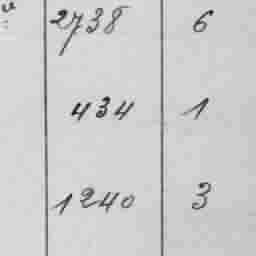 2738 6
434 1
1240 3